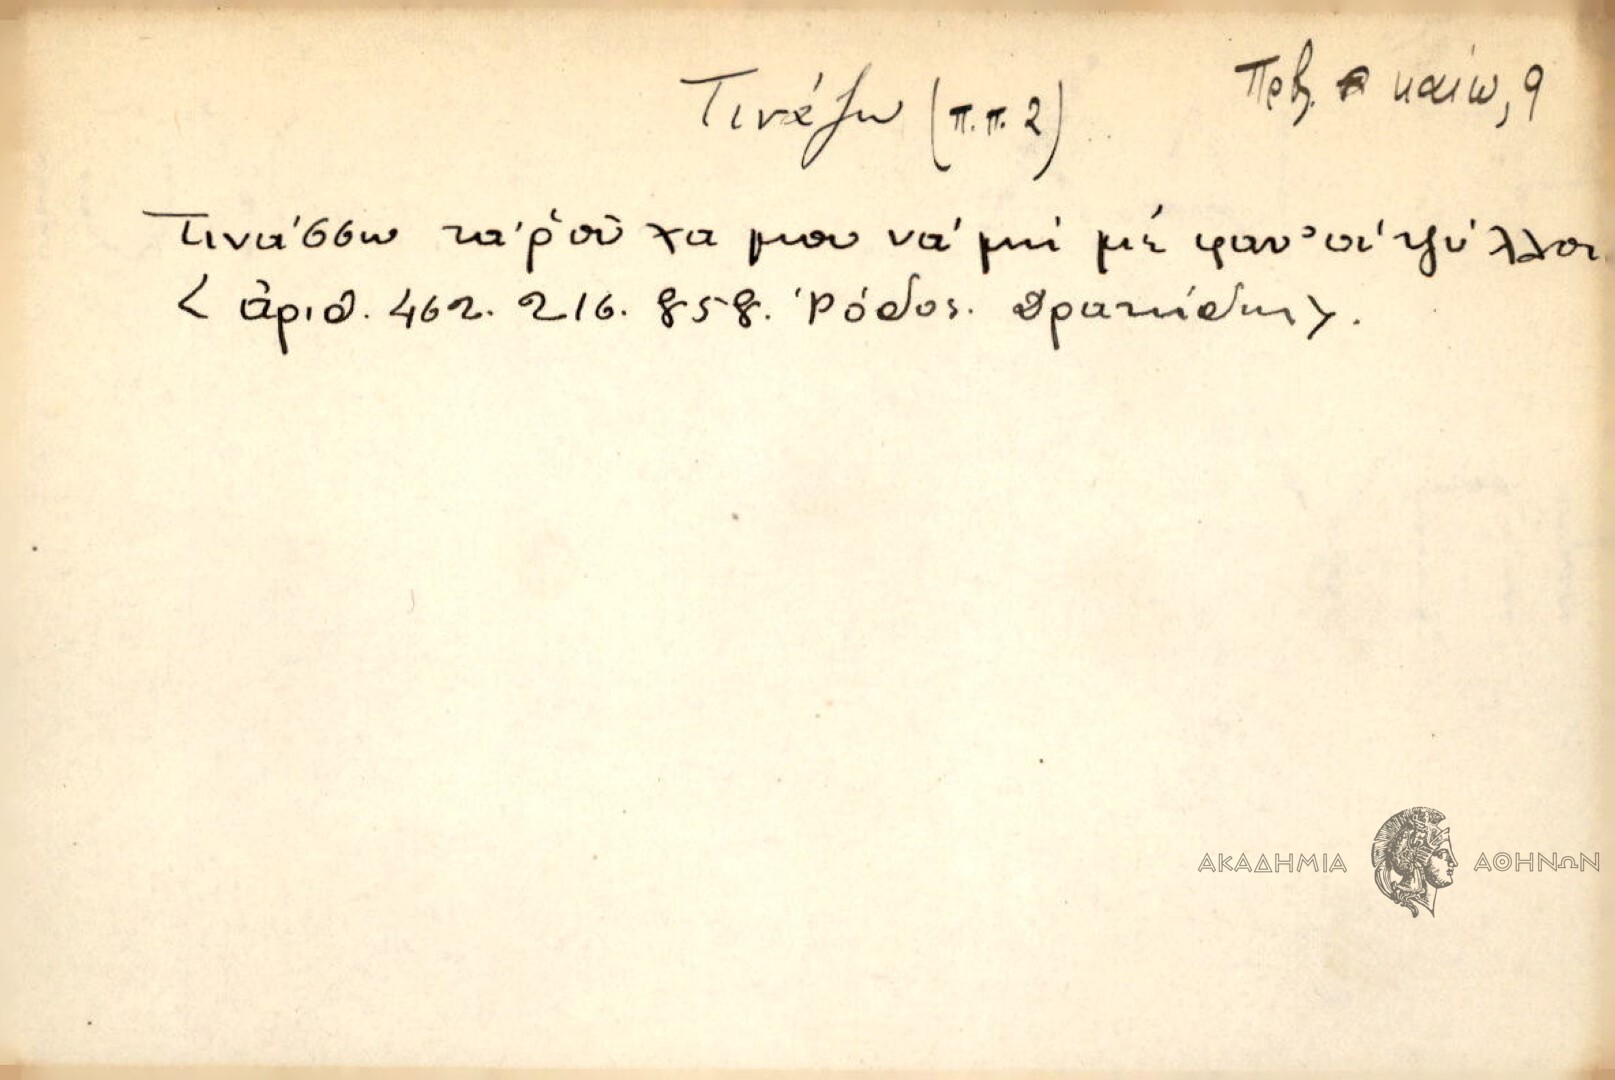 Τινάζω (π.π. 2)
Πρβ. καίω, 9
Τινάσσω τα ρoῦχα μου νά μή μέ φαν' οἱ ψύλλοι.
< ἀριθ. 462. 216. 858. Ῥόδος. Δρακίδης >.
ΑΚΑΔΗΜΙΑ ΑΘΗΝΩΝ